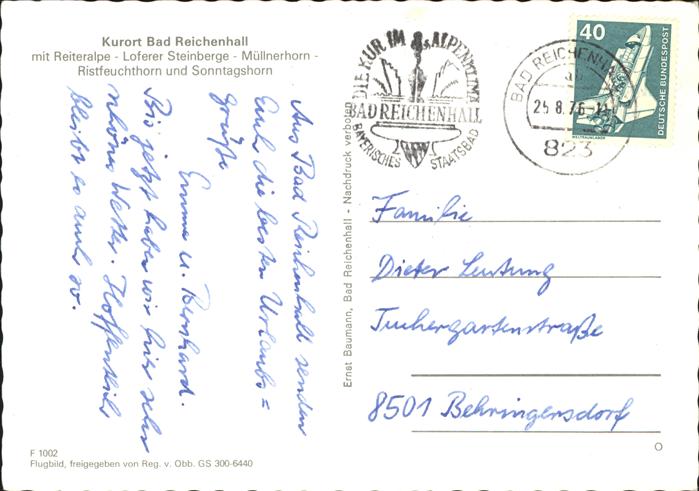 Kurort Bad Reichenhall
mit Reiteralpe - Loferer Steinberge - Müllnerhorn -
Ristfeuchthorn und Sonntagshorn
Aus Bad Reichenhall senden
Euch die besten Urlaubs=
grüße
Emma u. Bernhard.
Bis jetzt haben wir hier sehr
schönes Wetter. Hoffentlich
bleibt es auch so.
F 1002
Flugbild, freigegeben von Reg. v. Obb. GS 300-6440
Ernst Baumann, Bad Reichenhall - Nachdruck verboten
DIE KUR IM ALPENKLIMA
BAD REICHENHALL
BAYERISCHES STAATSBAD
BAD REICHENHALL
25.8.76
823
40
DEUTSCHE BUNDESPOST
WELTRAUMLABOR
Familie
Dieter
Tuchergartenstraße
8501 Behringersdorf